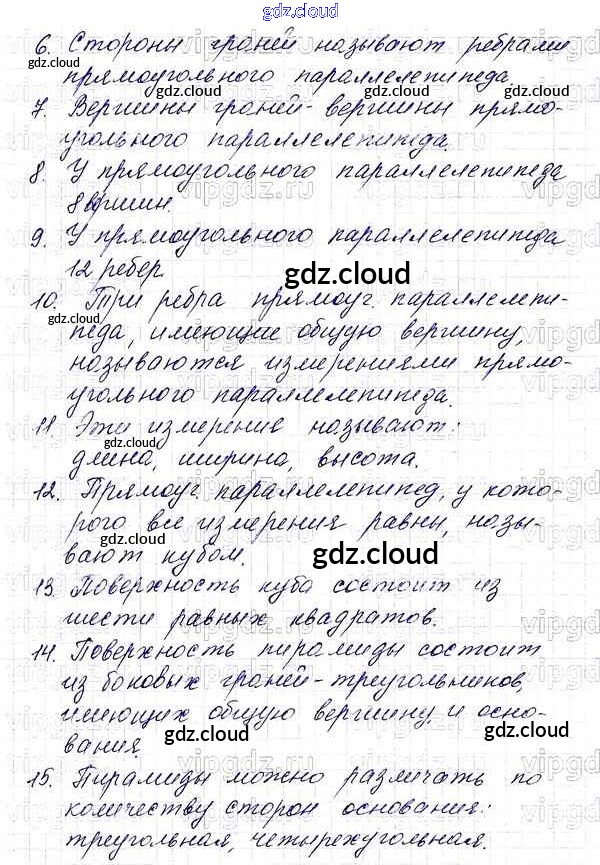 gdz.cloud
6. Стороны граней называют ребрами
gdz.cloud
прямоугольного параллелепипеда
gdz.cloud
7. Вершины граней - вершины прямо-
угольного параллелепипеда.
gdz.cloud
8. У прямоугольного параллелепипеда
8 вершин.
9. У прямоугольного параллелепипеда
12 ребер
gdz.cloud
10. Три ребра прямоуг. параллелепи-
gdz.cloud
педа, имеющие общую вершину,
называются измерениями прямо-
угольного параллелепипеда.
11. Эти измерения называют:
gdz.cloud
длина, ширина, высота.
12. Прямоуг. параллелепипед, у кото-
рого все измерения равны, назы-
вают кубом.
gdz.cloud
13. Поверхность куба состоит из
шести равных квадратов.
14. Поверхность пирамиды состоит
из боковых граней - треугольников,
имеющих общую вершину, и осно-
вания
gdz.cloud
gdz.cloud
15. Пирамиды можно различать по
количеству сторон основания:
треугольная, четырехугольная.